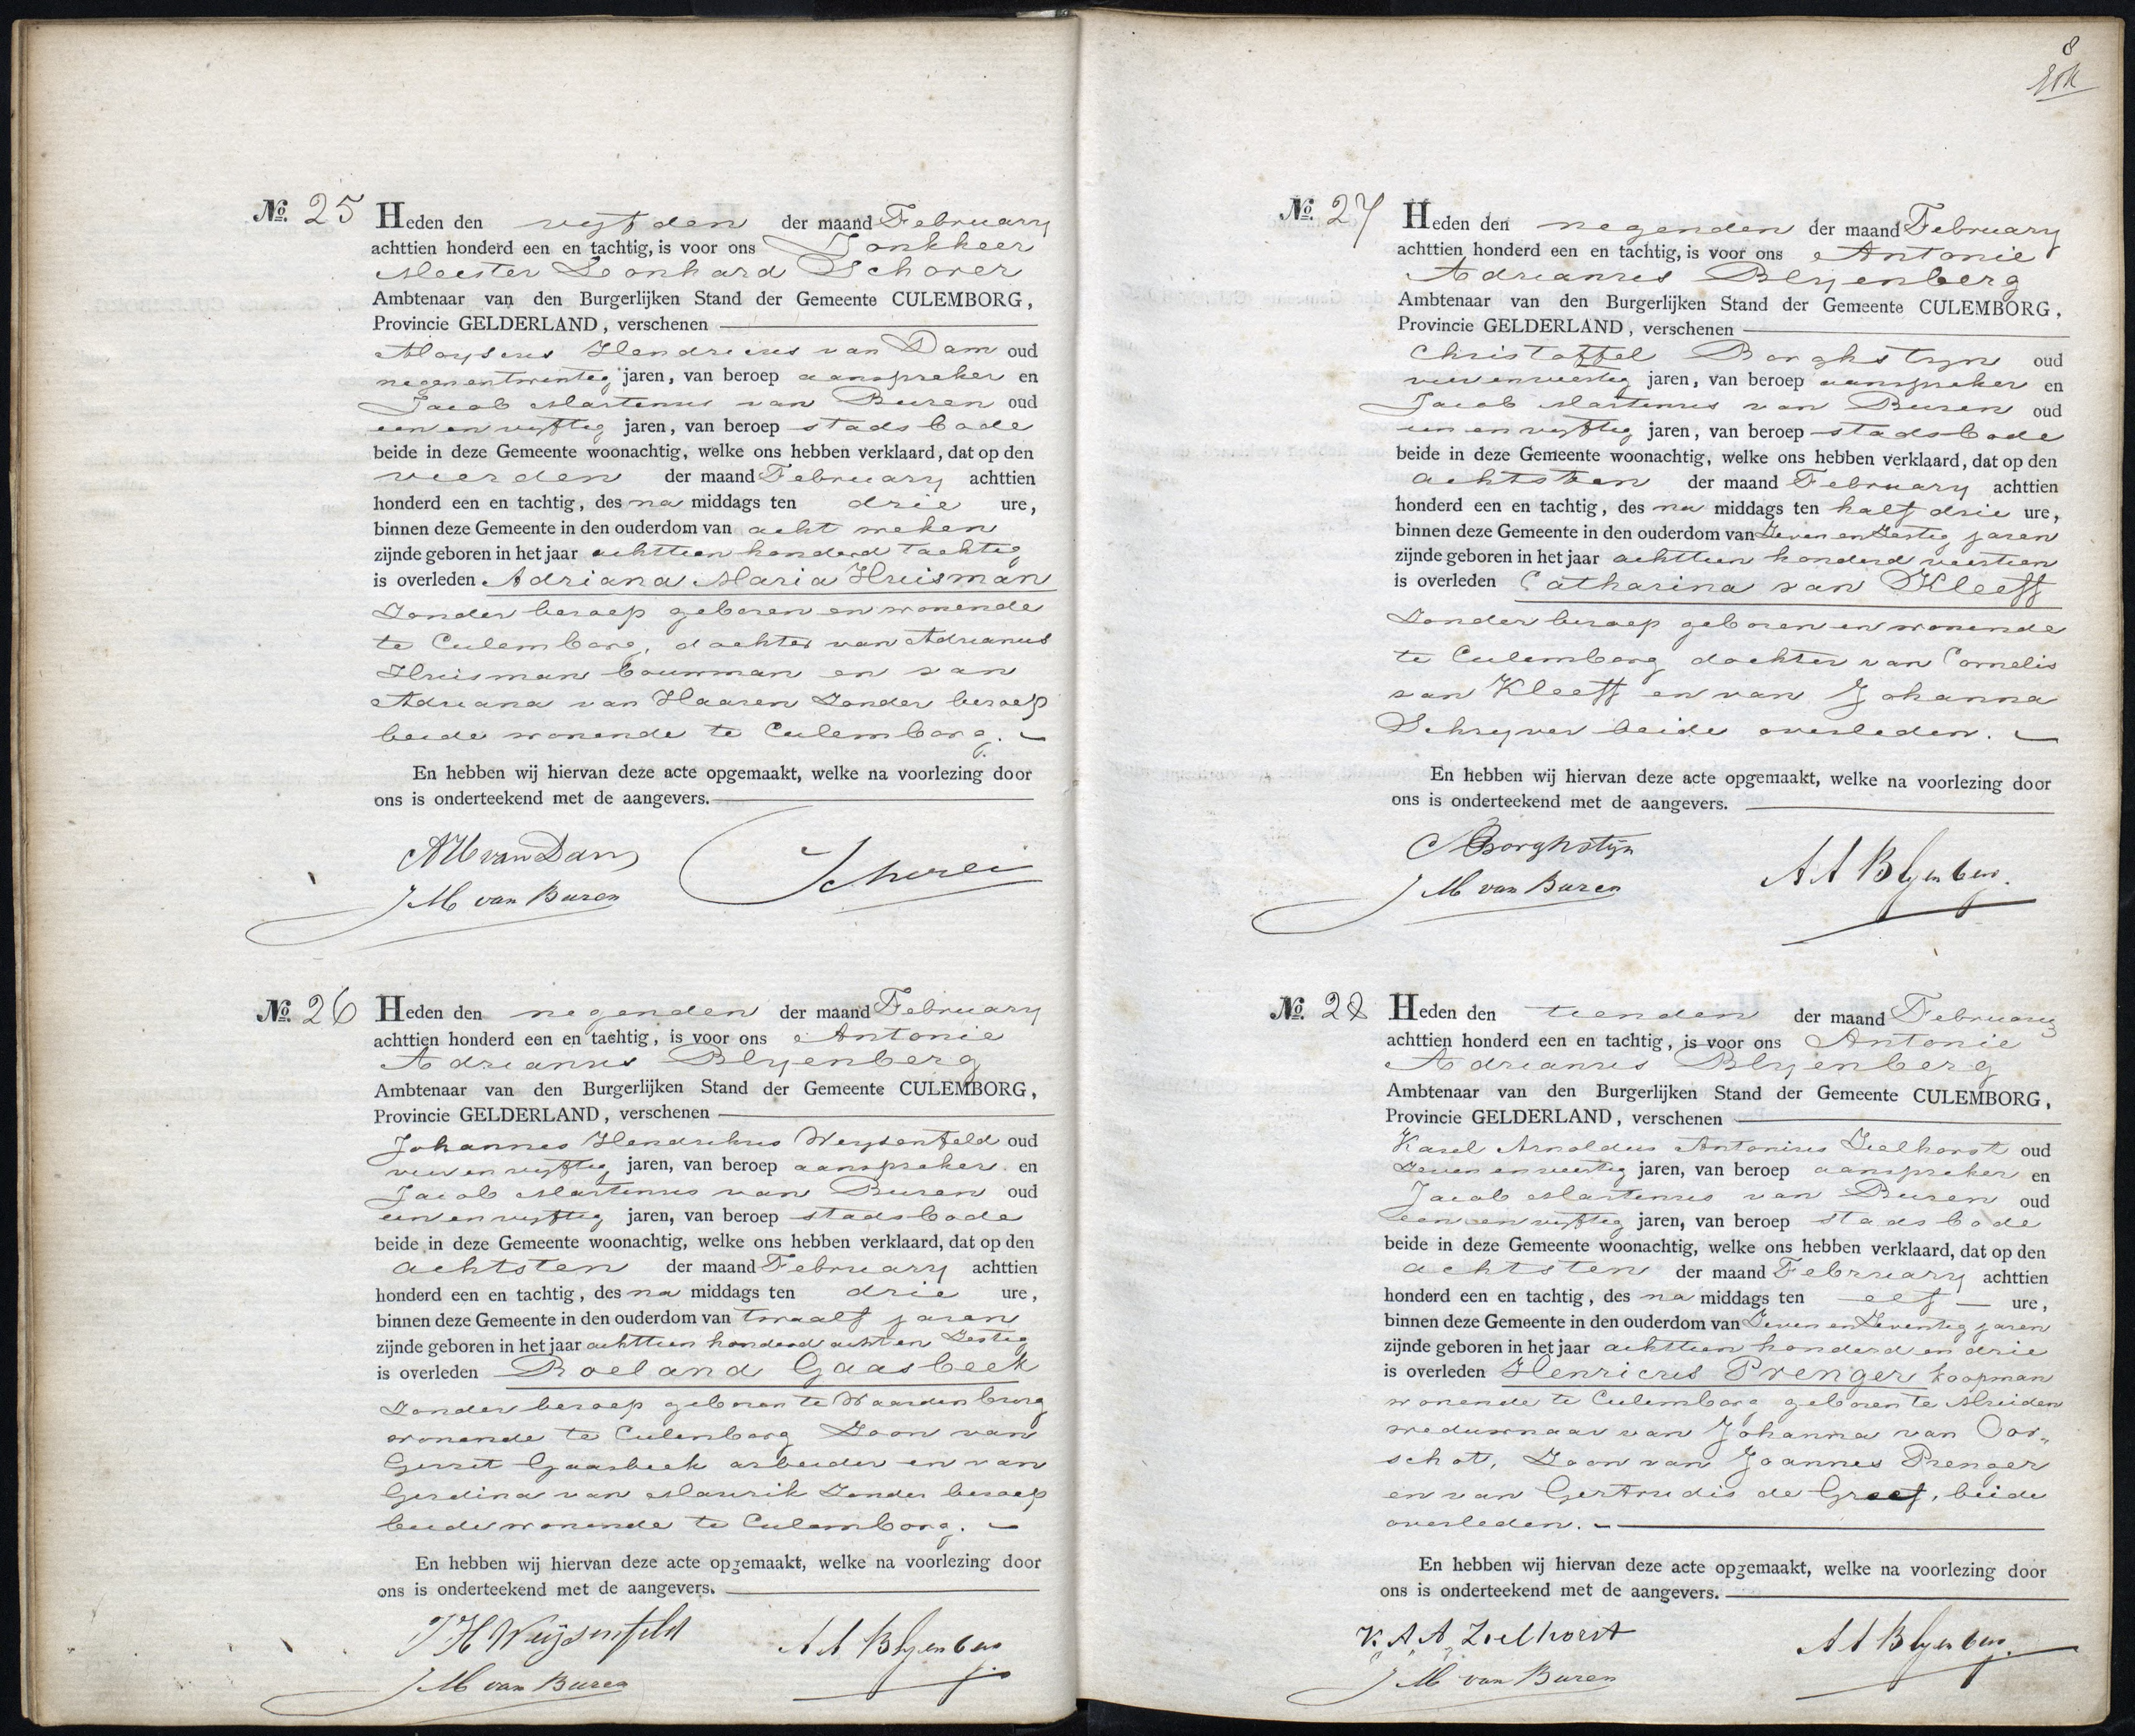 No. 25 Heden den vyfden der maand February
achttien honderd een en tachtig, is voor ons Jonkheer
Meester Leonhard Schorer
Ambtenaar van den Burgerlijken Stand der Gemeente CULEMBORG,
Provincie GELDERLAND, verschenen
Aloysius Hendricus van Dam oud
negenentwintig jaren, van beroep aanspreker en
Jacob Martinus van Buren oud
een en vyftig jaren, van beroep stadsbode
beide in deze Gemeente woonachtig, welke ons hebben verklaard, dat op den
vierden der maand February achttien
honderd een en tachtig, des na middags ten drie ure,
binnen deze Gemeente in den ouderdom van acht weken
zijnde geboren in het jaar achttien honderd tachtig
is overleden Adriana Maria Huisman
Zonder beroep geboren en wonende
te Culemborg, dochter van Adrianus
Huisman bouwman en van
Adriana van Haaren Zonder beroep
beide wonende te Culemborg.
En hebben wij hiervan deze acte opgemaakt, welke na voorlezing door
ons is onderteekend met de aangevers.
AHvanDam Schorer
JM van Buren
No. 26 Heden den negenden der maand February
achttien honderd een en tachtig, is voor ons Antonie
Adrianus Blyenberg
Ambtenaar van den Burgerlijken Stand der Gemeente CULEMBORG,
Provincie GELDERLAND, verschenen
Johannes Hendrikus Weysenfeld oud
vier en vyftig jaren, van beroep aanspreker en
Jacob Martinus van Buren oud
een en vyftig jaren, van beroep stadsbode
beide in deze Gemeente woonachtig, welke ons hebben verklaard, dat op den
achtsten der maand February achttien
honderd een en tachtig, des na middags ten drie ure,
binnen deze Gemeente in den ouderdom van twaalf jaren
zijnde geboren in het jaar achttien honderd acht en Zestig
is overleden Roeland Gaasbeek
Zonder beroep geboren te Waardenburg
wonende te Culemborg Zoon van
Gerrit Gaasbeek arbeider en van
Gerdina van Maurik Zonder beroep
beide wonende te Culemborg.
En hebben wij hiervan deze acte opgemaakt, welke na voorlezing door
ons is onderteekend met de aangevers.
JH Weijsenfeld AA Blyenberg
JM van Buren
8
No. 27 Heden den negenden der maand February
achttien honderd een en tachtig, is voor ons Antonie
Adrianus Blyenberg
Ambtenaar van den Burgerlijken Stand der Gemeente CULEMBORG,
Provincie GELDERLAND, verschenen
Christoffel Borghstyn oud
vier en veertig jaren, van beroep aanspreker en
Jacob Martinus van Buren oud
een en vyftig jaren, van beroep stadsbode
beide in deze Gemeente woonachtig, welke ons hebben verklaard, dat op den
achtsten der maand February achttien
honderd een en tachtig, des na middags ten half drie ure,
binnen deze Gemeente in den ouderdom van Zeven en Zestig jaren
zijnde geboren in het jaar achttien honderd veertien
is overleden Catharina van Kleeff
Zonder beroep geboren en wonende
te Culemborg dochter van Cornelis
van Kleeff en van Johanna
Schryver beide overleden.
En hebben wij hiervan deze acte opgemaakt, welke na voorlezing door
ons is onderteekend met de aangevers.
CBorghstijn AA Blyenberg
JM van Buren
No. 28 Heden den tienden der maand February
achttien honderd een en tachtig, is voor ons Antonie
Adrianus Blyenberg
Ambtenaar van den Burgerlijken Stand der Gemeente CULEMBORG,
Provincie GELDERLAND, verschenen
Karel Arnoldus Antonius Zielhorst oud
Zeven en veertig jaren, van beroep aanspreker en
Jacob Martinus van Buren oud
een en vyftig jaren, van beroep stadsbode
beide in deze Gemeente woonachtig, welke ons hebben verklaard, dat op den
achtsten der maand February achttien
honderd een en tachtig, des na middags ten elf ure,
binnen deze Gemeente in den ouderdom van Zeven en Zeventig jaren
zijnde geboren in het jaar achttien honderd en drie
is overleden Henricus Prenger koopman
wonende te Culemborg geboren te Muiden
weduwnaar van Johanna van Oor„
schot, Zoon van Joannes Prenger
en van Gertrudis de Greef, beide
overleden.
En hebben wij hiervan deze acte opgemaakt, welke na voorlezing door
ons is onderteekend met de aangevers.
K.A.A. Zielhorst AA Blyenberg
JM van Buren